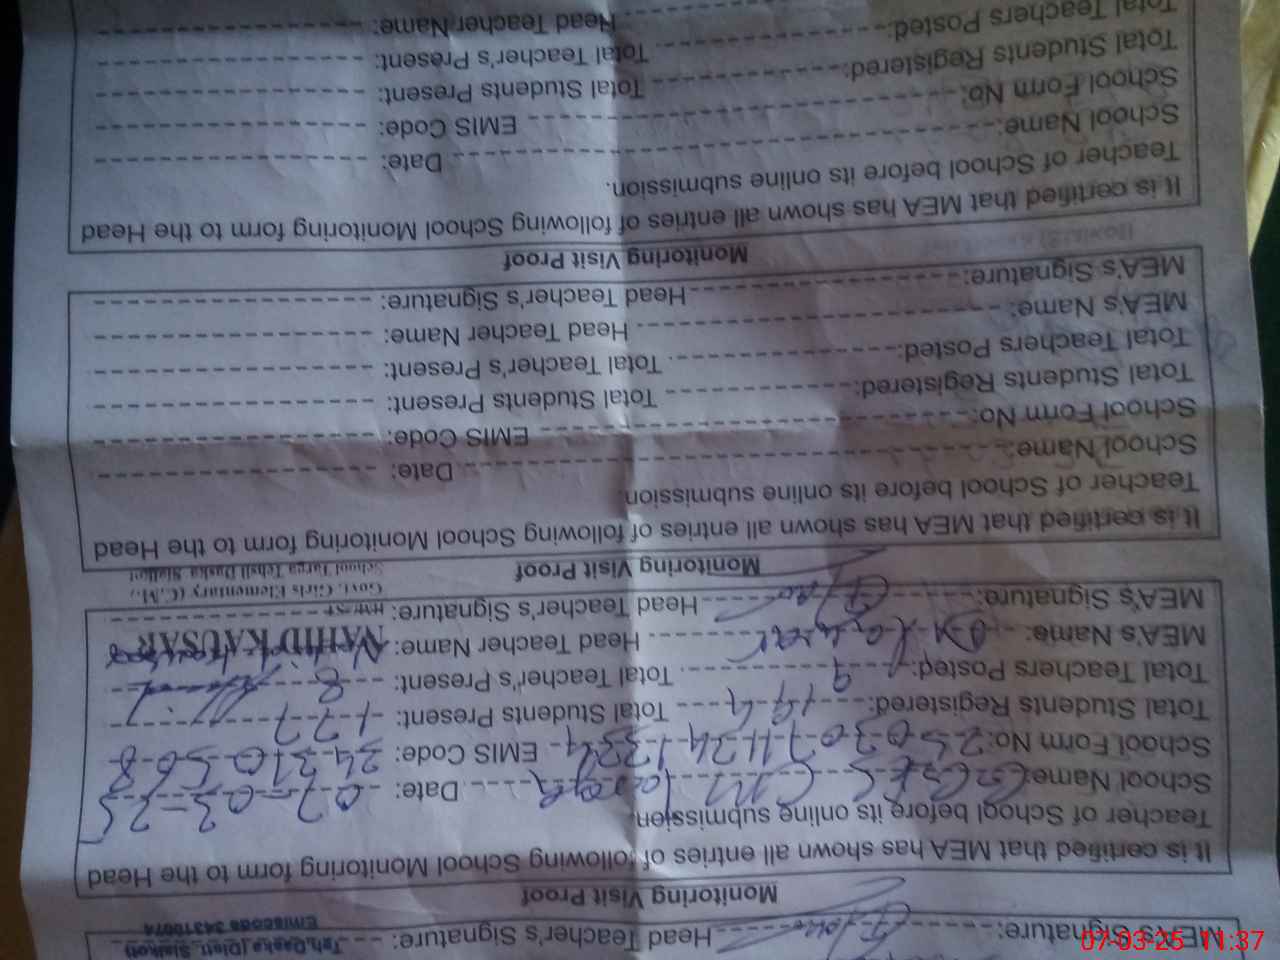 MEA's Signature: Head Teacher's Signature:
Teh.Daska (Distt. Sialkot)
Emiscode 34310074
Monitoring Visit Proof
It is certified that MEA has shown all entries of following School Monitoring form to the Head
Teacher of School before its online submission.
School Name: GGES (M) Date: 07-03-25
School Form No: EMIS Code: 34310568
Total Students Registered: Total Students Present: 177
Total Teachers Posted: 9 Total Teacher's Present: 8
MEA's Name: Head Teacher Name: NAHID KAUSAR
MEA's Signature: Head Teacher's Signature:
Govt. Girls Elementary (C.M.,
School Targa Tehsil Daska Sialkot
Monitoring Visit Proof
It is certified that MEA has shown all entries of following School Monitoring form to the Head
Teacher of School before its online submission.
School Name: Date:
School Form No: EMIS Code:
Total Students Registered: Total Students Present:
Total Teachers Posted: Total Teacher's Present:
MEA's Name: Head Teacher Name:
MEA's Signature: Head Teacher's Signature:
Monitoring Visit Proof
It is certified that MEA has shown all entries of following School Monitoring form to the Head
Teacher of School before its online submission.
School Name: Date:
School Form No: EMIS Code:
Total Students Registered: Total Students Present:
Total Teachers Posted: Total Teacher's Present:
Head Teacher Name:
07-03-25 11:37